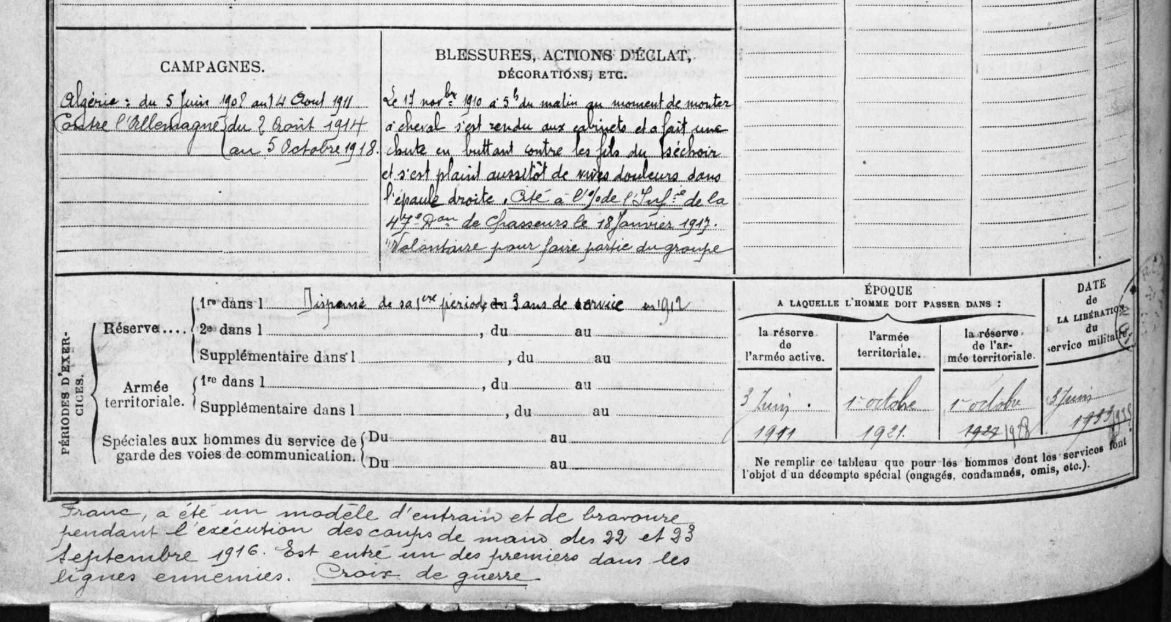 CAMPAGNES.
Algérie : du 5 Juin 1908 au 14 Aout 1911
Contre l'Allemagne du 2 Août 1914
au 5 Octobre 1918.
BLESSURES, ACTIONS D'ÉCLAT,
DÉCORATIONS, ETC.
Le 17 novbre 1910 à 5h du matin au moment de monter
à cheval s'est rendu aux cabinets et a fait une
chute en buttant contre les fils du séchoir
et s'est plaint aussitôt de vives douleurs dans
l'épaule droite. Cité à l'o/ de l'Infie de la
47e Don de Chasseurs le 18 Janvier 1917.
"Volontaire pour faire partie du groupe
PÉRIODES D'EXER-
CICES.
Réserve....
1re dans l Dispensé de sa 1ere période 3 ans de service en 1912
2e dans l , du au
Supplémentaire dans l , du au
Armée
territoriale.
1re dans l , du au
Supplémentaire dans l , du au
Spéciales aux hommes du service de
garde des voies de communication.
Du au
Du au
ÉPOQUE
A LAQUELLE L'HOMME DOIT PASSER DANS :
la réserve
de
l'armée active.
l'armée
territoriale.
la réserve
de l'ar-
mée territoriale.
DATE
de
LA LIBÉRATION
du
service militaire.
3 Juin
1911
1er octobre
1921.
1er octobre
1927 1928
3 Juin
1933
Ne remplir ce tableau que pour les hommes dont les services font
l'objet d'un décompte spécial (engagés, condamnés, omis, etc.).
Franc, a été un modèle d'entrain et de bravoure
pendant l'exécution des coups de main des 22 et 23
Septembre 1916. Est entré un des premiers dans les
lignes ennemies. Croix de guerre